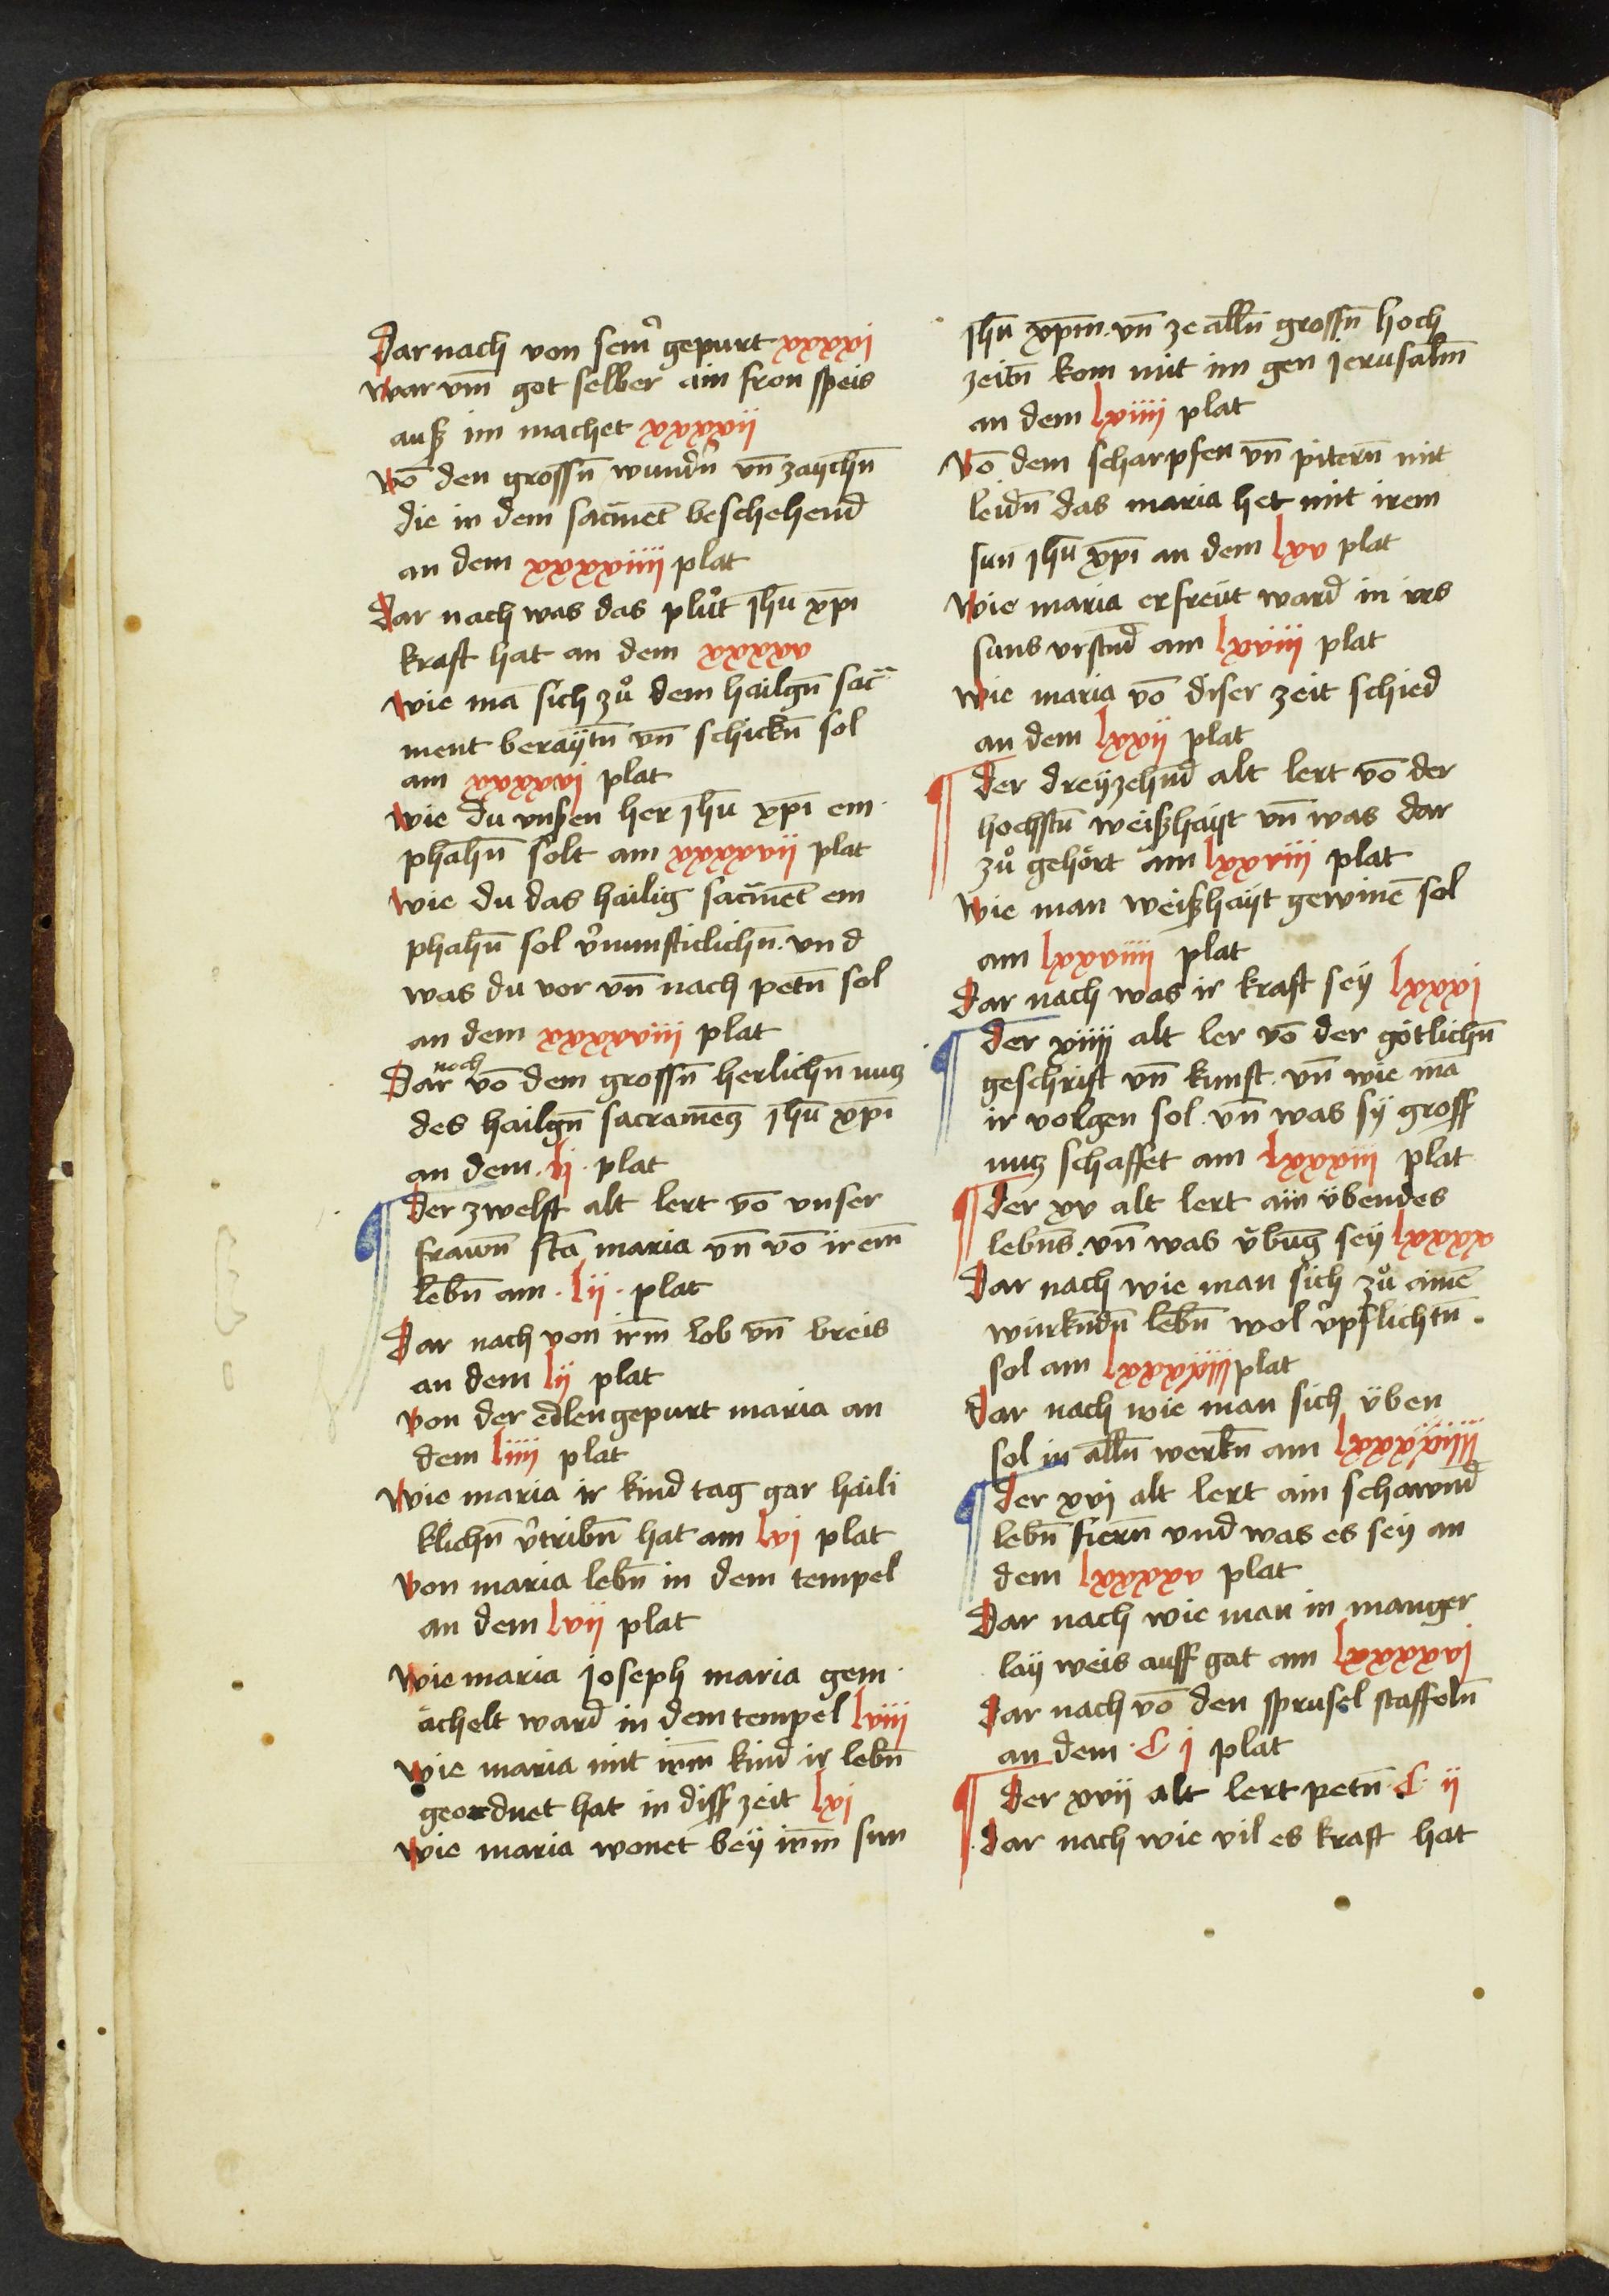 Dar nach von sein̾ gepurt xxxxi
war vm̄ got selber ain fron speis
auß im machet xxxxii
vō den grossn̄ wundn̾ vn̄ zaychn̄
die in dem sacm̄et beschehend
an dem xxxxiiii plat
dar nach was das plůt Jhū xp̄i
kraft hat an dem xxxxv
wie mā sich zů dem hailgn̄ sac̄
ment beraytn̄ vn̄ schickn̄ sol
am xxxxvi plat
wie du vnsen her Jhū xp̄i em
phahn̄ solt am xxxxvii plat
wie du das hailig sacm̄et em
phahn̄ sol v̾nunfticlichn̄. vnd
was du vor vn̄ nach petn̄ sol
an dem xxxxviii plat
Dar noch vō dem grossn̄ herlichn̄ nucz
des hailgn̄ sacramēcz Jhū xp̄i
an dem . lj . plat
der zwelft alt lert vō vnser
frawn̄ stā maria vn̄ vō irem̄
lebn̄ am . lij . plat
Dar nach von irm̄ lob vn̄ breis
an dem lij plat
von der edlen gepurt maria an
dem liiii plat
wie maria ir kind tag gar haili
klichn̄ v̾tribn̄ hat am lvi plat
von maria lebn̄ in dem tempel
an dem lvii plat
wie maria joseph maria gem
ächelt ward in dem tempel lviii
wie maria mit irm̄ kind ir lebn̄
geordnet hat in diss zeit lxi
wie maria wonet bey irm̄ sun
Jhū xp̄m. vn̄ ze alln̄ grossn̄ hoch
zeitn̄ kom mit im gen jerusalm̄
an dem lxiiii plat
Vō dem scharpfen vn̄ pitern̄ mit
leidn̄ das maria het mit irem
sun Jhū xp̄i an dem lxv plat
wie maria erfreüt ward in irs
suns vrstnd am lxviii plat
wie maria vō diser zeit schied
an dem lxxii plat
der dreyzehnd alt lert vō der
hochstn̄ weißhayt vn̄ was dar
zů gehört am lxxviii plat
wie man weißhayt gewinē sol
am lxxviiii plat
Dar nach was ir kraft sey lxxxi
der xiiii alt ler vō der götlichn̄
geschrift vn̄ kunst. vn̄ wie mā
ir volgen sol. vn̄ was sy gross
nucz schaffet am lxxxiii plat
der xv alt lert ain übendes
lebn̄s. vn̄ was übūg sey lxxxx
Dar nach wie man sich zů ainē
würkn̄dn̄ lebn̄ wol v̾pflichtn̄.
sol am lxxxxiii plat
Dar nach wie man sich üben
sol in alln̄ werkn̄ am lxxxxiiii
der xvi alt lert ain schawnd
lebn̄ fiern̄ vnd was es sey an
dem lxxxxv plat
Dar nach wie man in manger
lay weis auff gat am lxxxxvi
dar nach vō den sprusel staffeln̄
an dem . C j plat
der xvii alt lert petn̄ . C . ij
dar nach wie vil es kraft hat